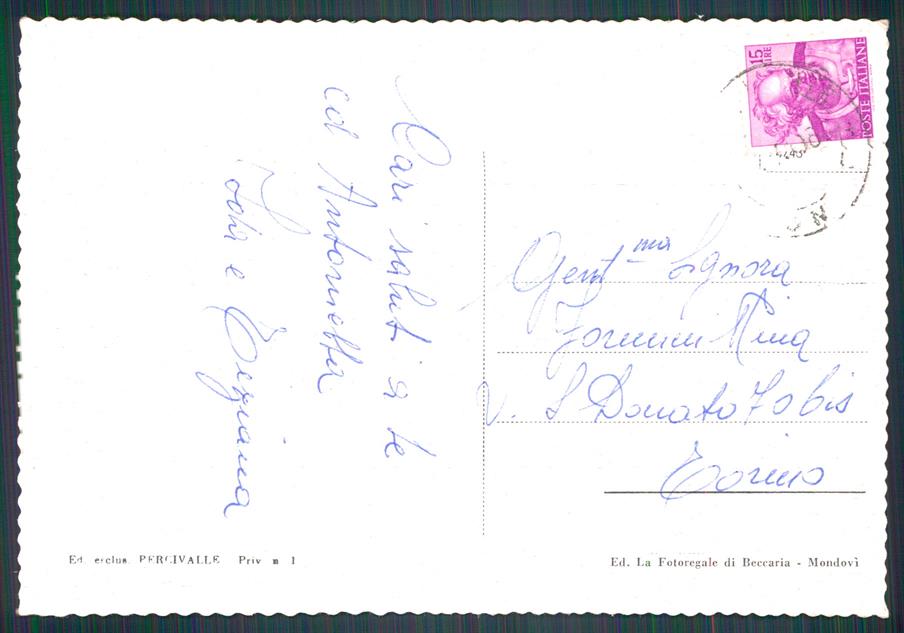 Cari saluti a te
ed Antonietta
Iole e Tiziana
15
LIRE
POSTE ITALIANE
Gent.ma Signora
Nina
V. S Donato 70 bis
Torino
Ed. esclus. PERCIVALLE Priv n 1
Ed. La Fotoregale di Beccaria - Mondovì